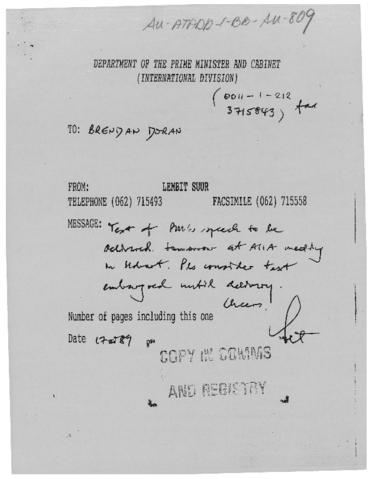 DEPARTMENT OF THE PRIME MINISTER AND CABINET
(INTERNATIONAL DIVISION)
(0011-1-212
3715843) fax
TO: BRENDAN DORAN
FROM: LEMBIT SUUR
TELEPHONE (062) 715493 FACSIMILE (062) 715558
MESSAGE: Text of PM's speech to be
delivered tomorrow at AIIA meeting
in Hobart. Pls consider text
embargoed until delivery.
Cheers.
Number of pages including this one
Date
COPY IN COMMS
AND REGISTRY